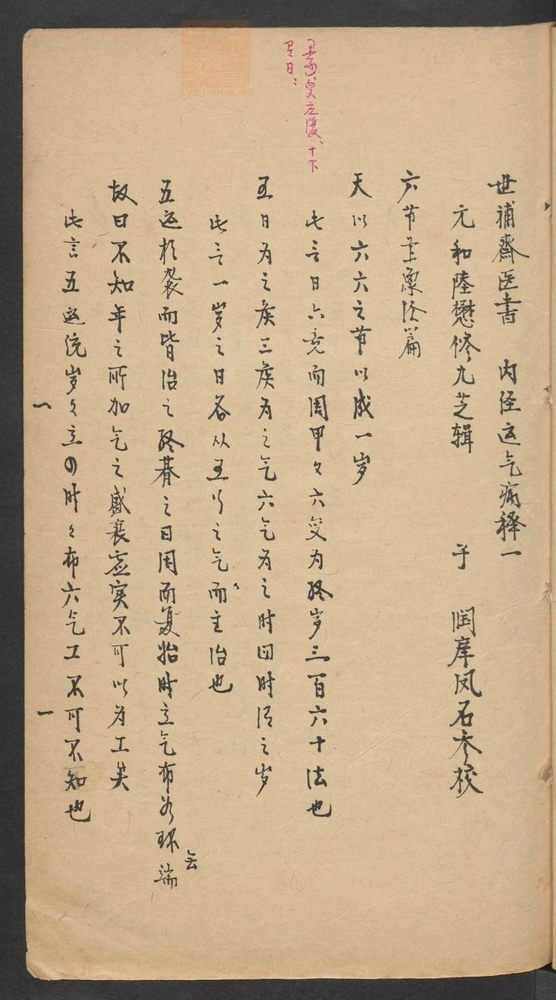 世補斋医書　内径运气病释一
元和陸懋修九芝辑　于　润庠凤石参校
六节藏象论篇
天以六六之节以成一岁
此言日六竟而周甲甲六复为终岁三百六十法也
五日为之候三候为之气六气为之时四时谓之岁
此言一岁之日各从五行之气而主治也
五运相袭而皆治之终朞之日周而复始时立气布如环无端
故曰不知年之所加气之盛衰虚实不可以为工矣
此言五运统岁岁立四时时布六气工不可不知也